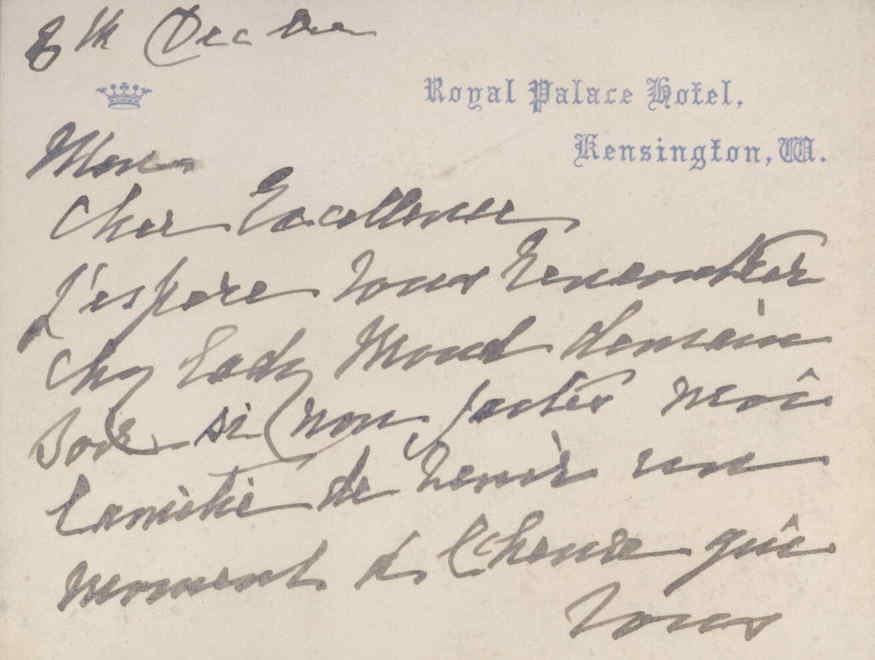 8th Decbre
Royal Palace Hotel,
Kensington, W.
Mon
cher Excellence
J'espere vous rencontrer
chez Lady Mond demain
soir si non faites moi
l'amitié de venir un
moment à l'heure que
vous